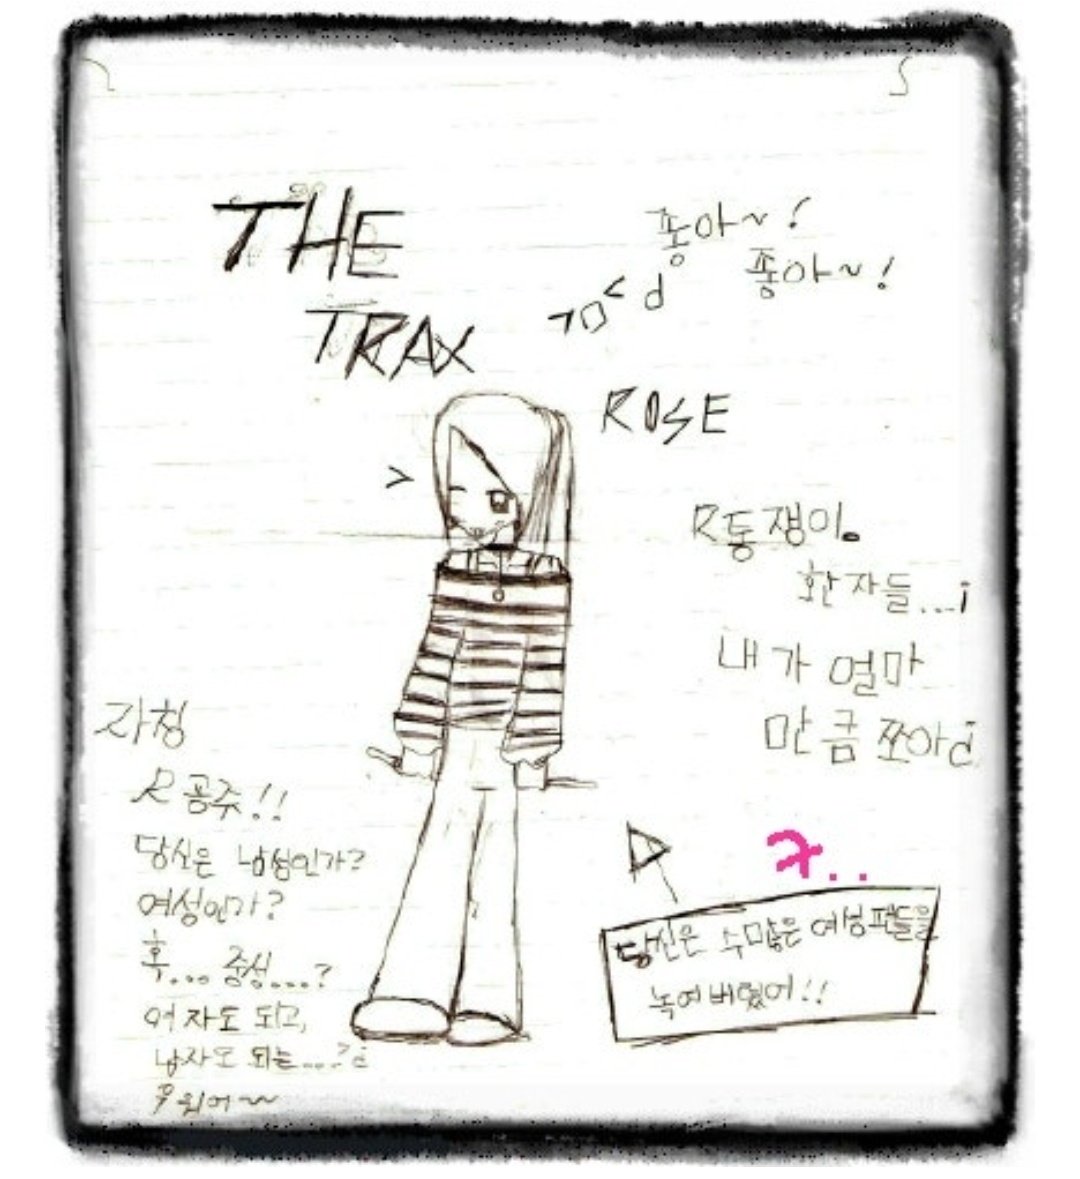 THE
TRAX
좋아~!
좋아~!
ROSE
R통쟁이.
환자들...i
내가 얼마
만큼 쪼아
자칭
R공주!!
당신은 남성인가?
여성인가?
혹... 중성...?
여자도 되고,
남자도 되는...?
무워어~~
당신은 수많은 여성팬들을
녹여버렸어!!